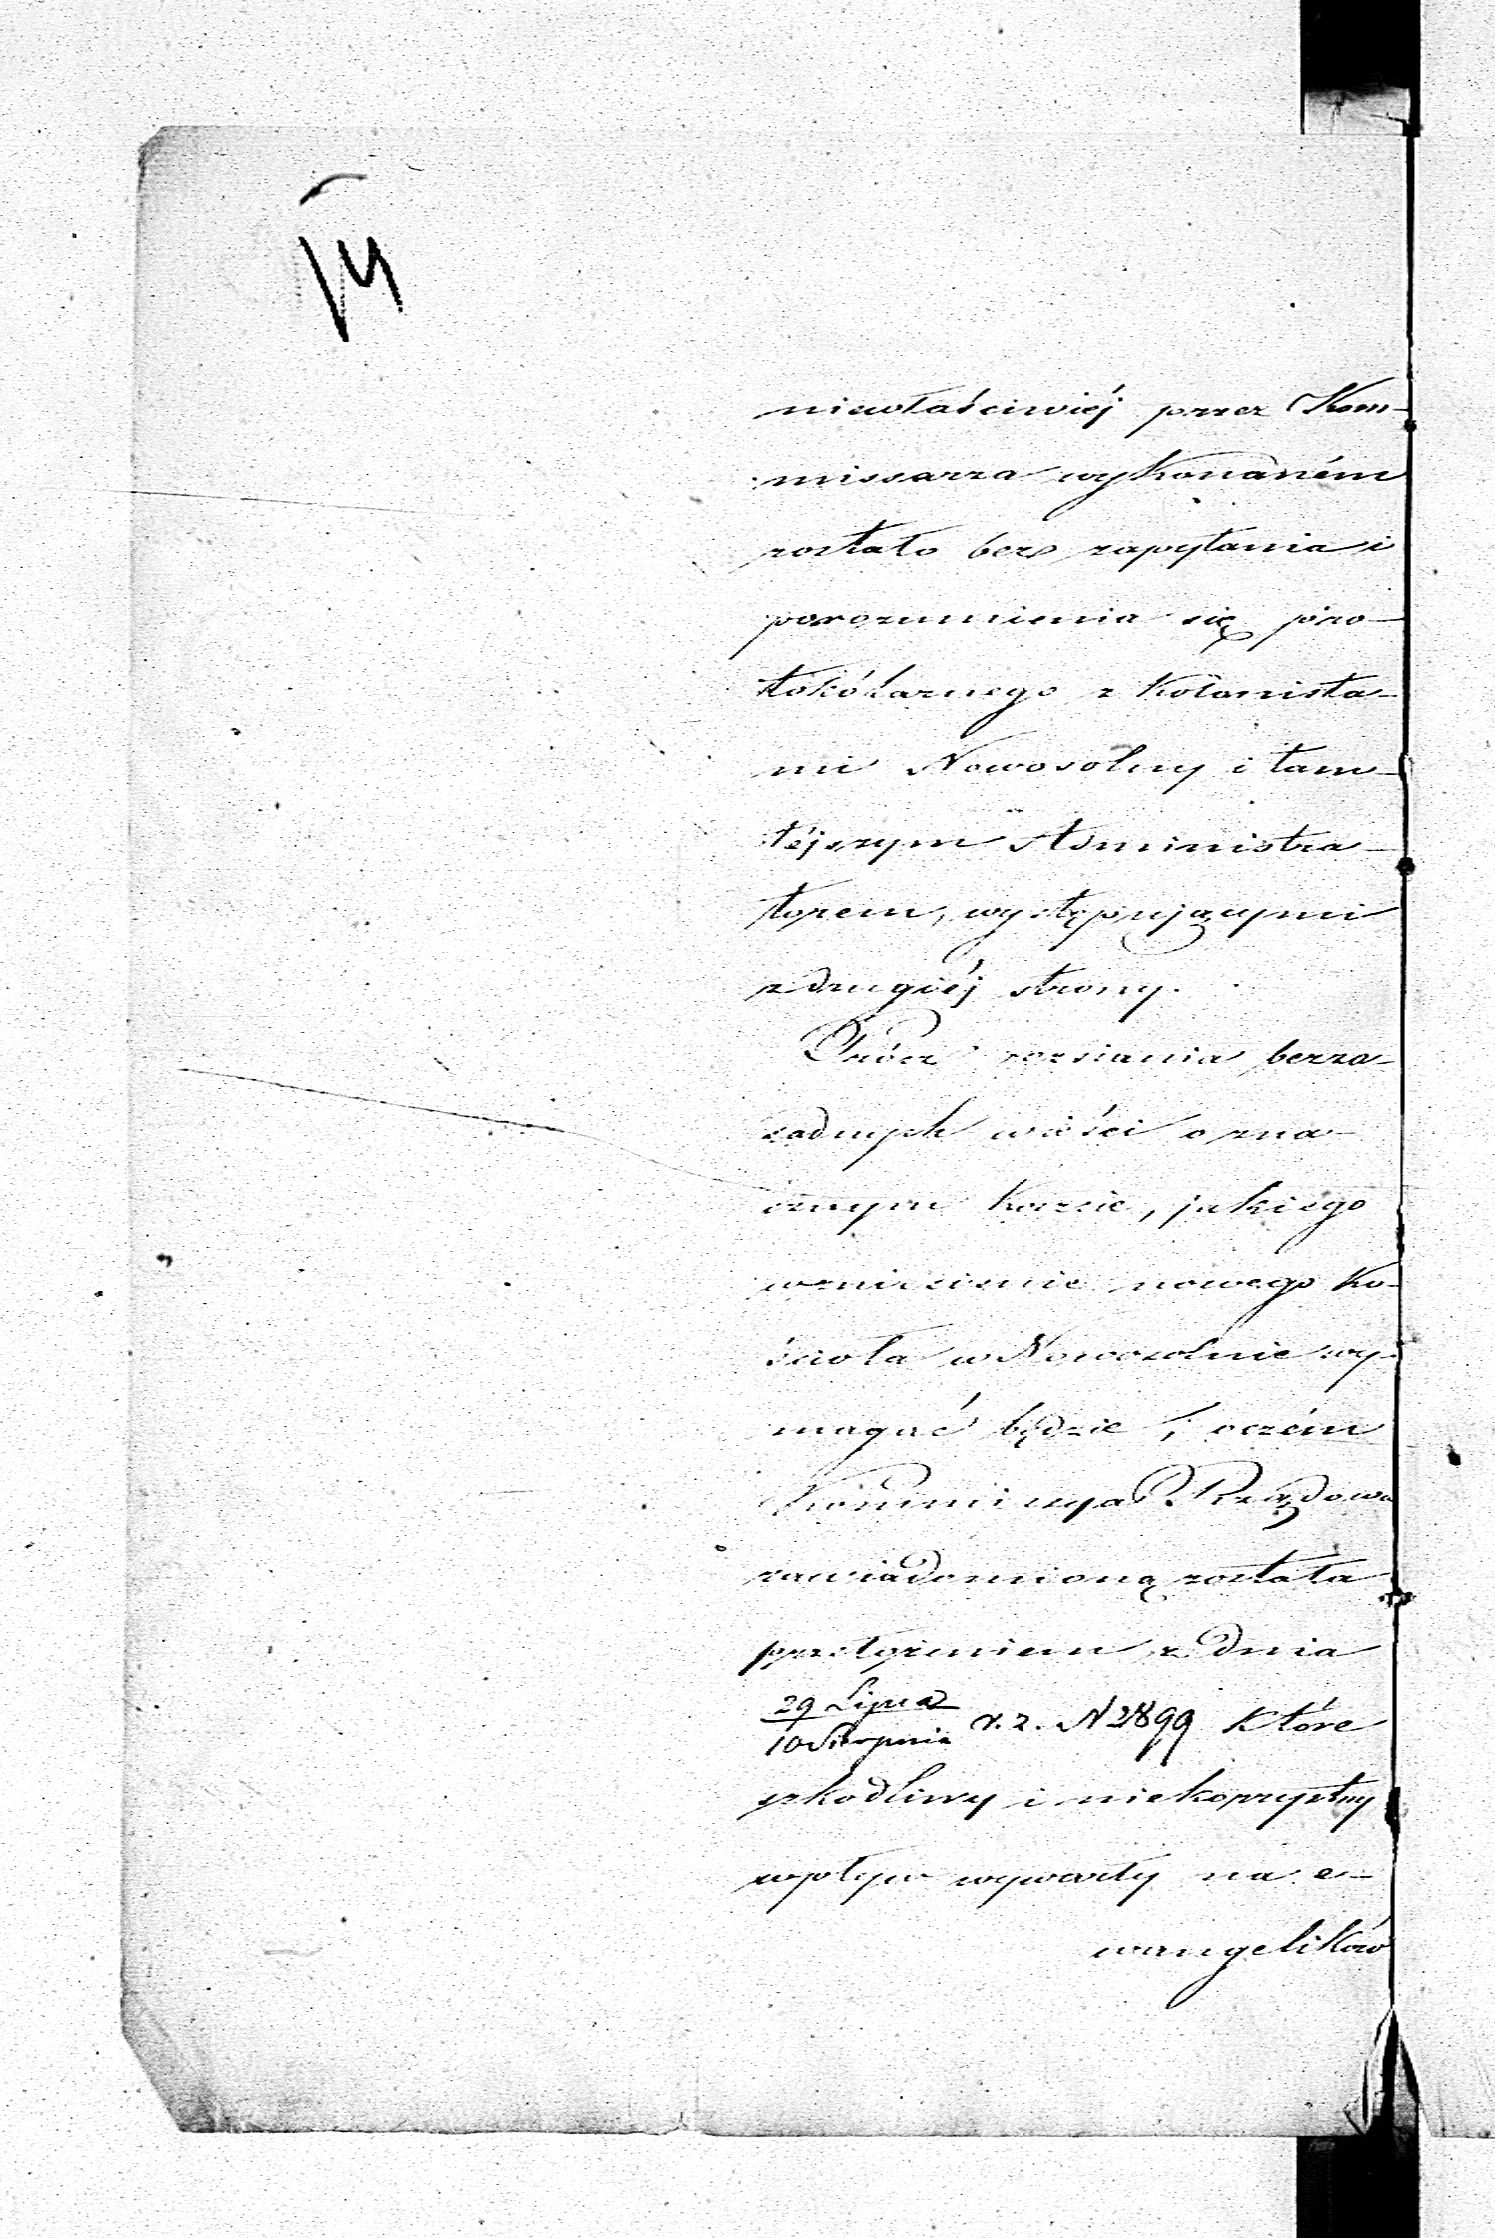 14
niewłaściwiéj przez Kom-
missarza wykonaném
zostało bez zapytania i
porozumienia się pro-
tokólarnego z Kolonista-
mi Nowosolny i tam-
téjszym Administra-
torem, występującymi
z drugiéj strony.
Prócz rozsiania bezza-
sadnych wieści o zna-
cznym koszcie, jakiego
wzniesienie nowego ko-
ścioła w Nowosolnie wy-
magać będzie, oczém
Kommissya Rządowa
zawiadomioną została
przełożeniem z dnia
29 Lipca / 10 Sierpnia r. z. N 2899 które
szkodliwy i niekorzystny
wpływ wywarły na e-
wangelików